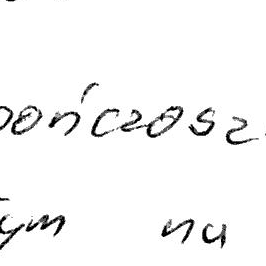 pończosz
tym na